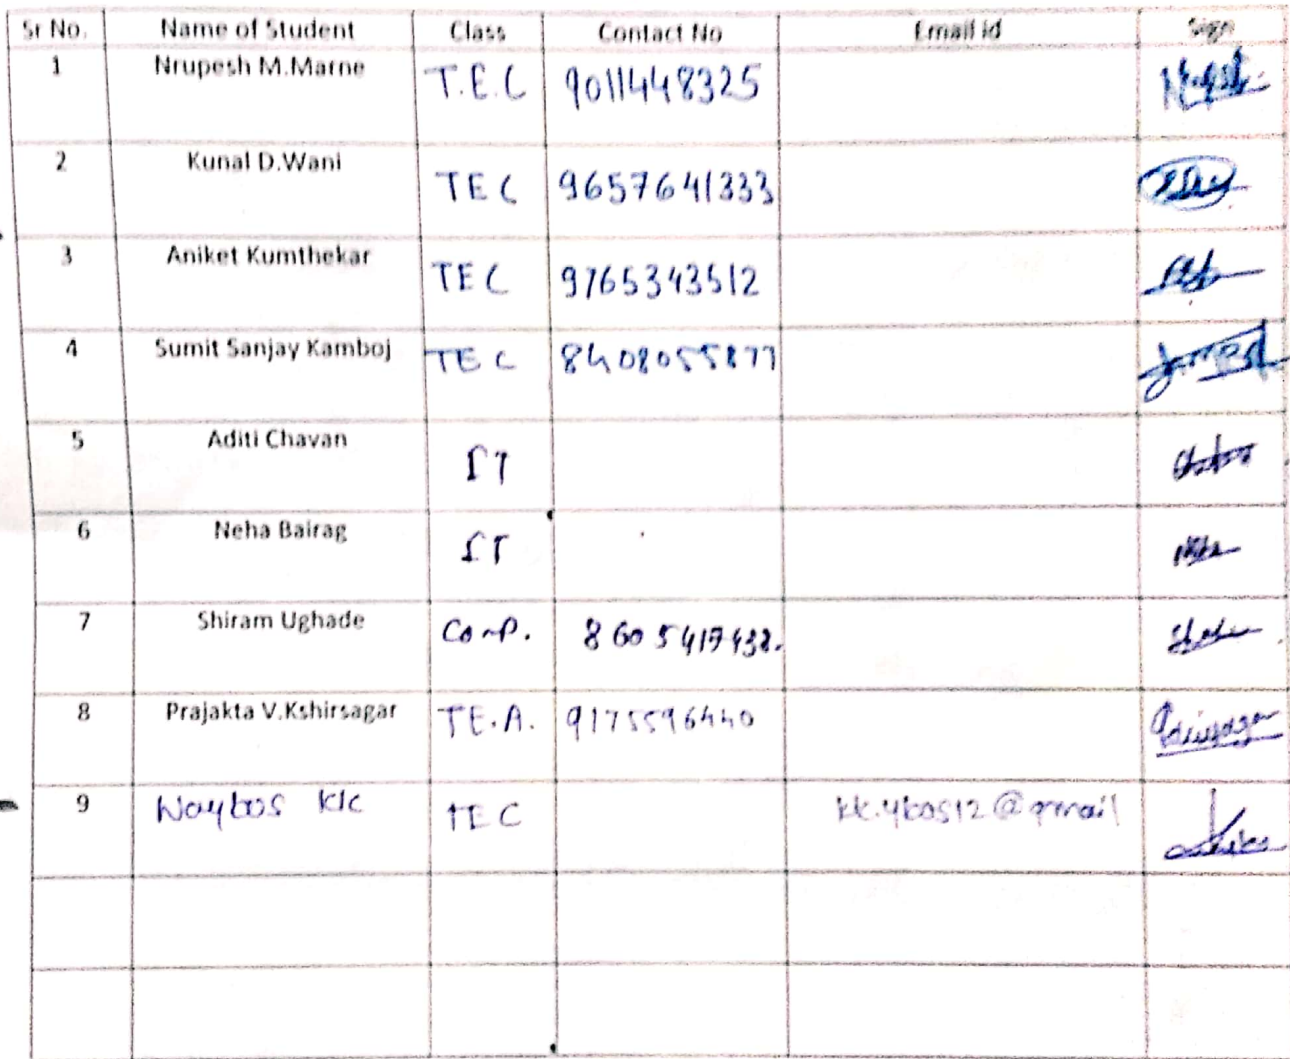 Sr No. Name of Student Class Contact No Email id Sign
1 Nrupesh M.Marne T.E.C 9011448325
2 Kunal D.Wani TEC 9657641333
3 Aniket Kumthekar TEC 9765343512
4 Sumit Sanjay Kamboj TEC 8408055877
5 Aditi Chavan IT
6 Neha Bairag IT
7 Shiram Ughade Comp.
8 Prajakta V.Kshirsagar TE.A. 9175596440
9 TEC